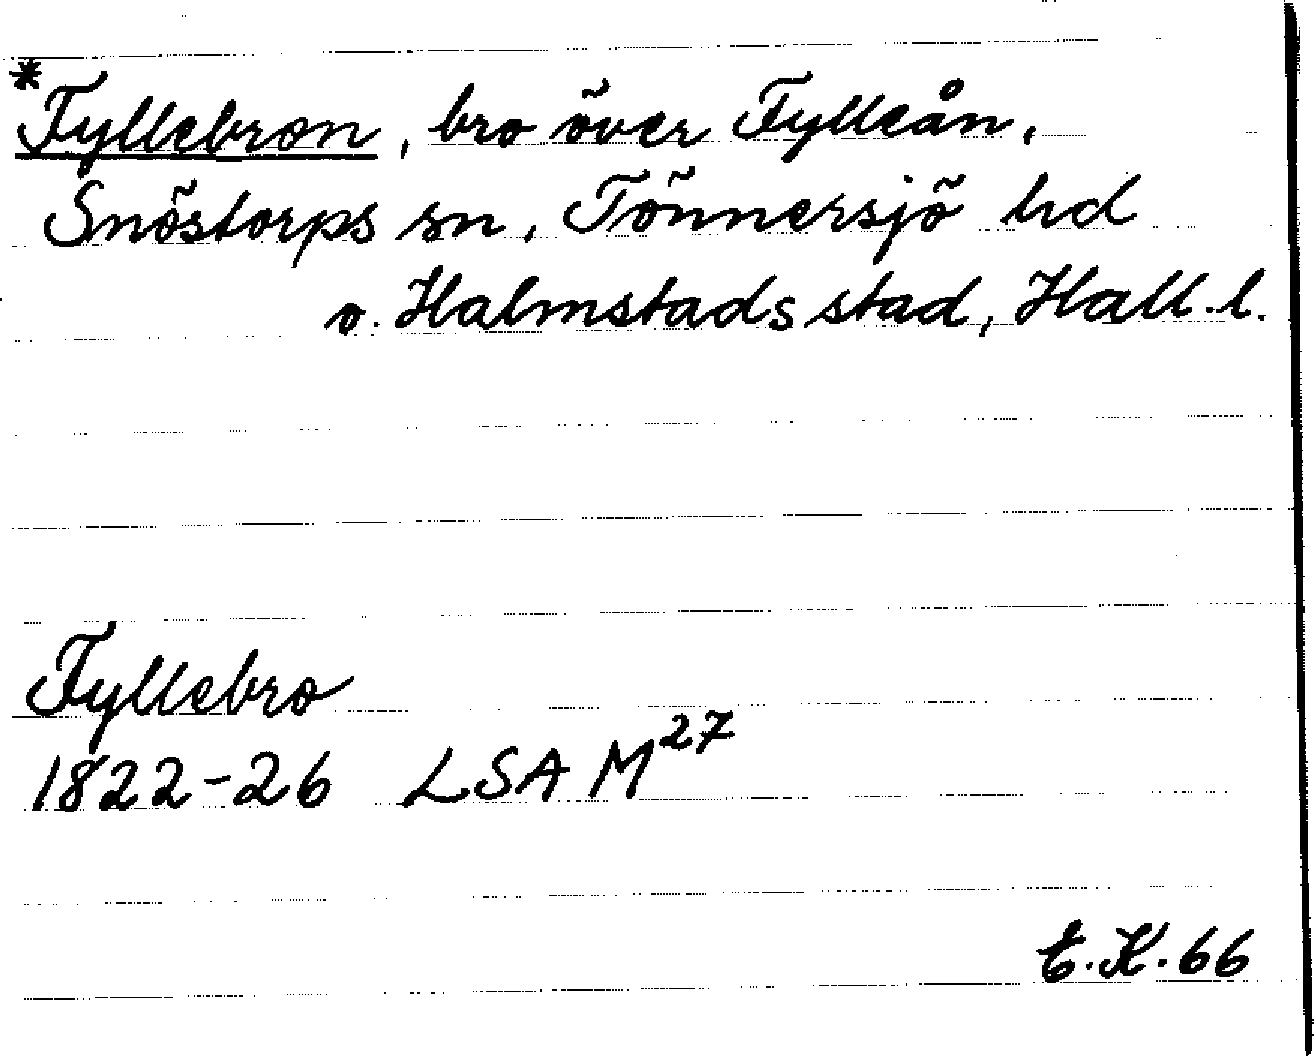 *Fyllebron, bro över Fylleån,
Snöstorps sn, Tönnersjö hd
o. Halmstads stad, Hall. l.
Fyllebro
1822-26 LSA M27
E.K.66